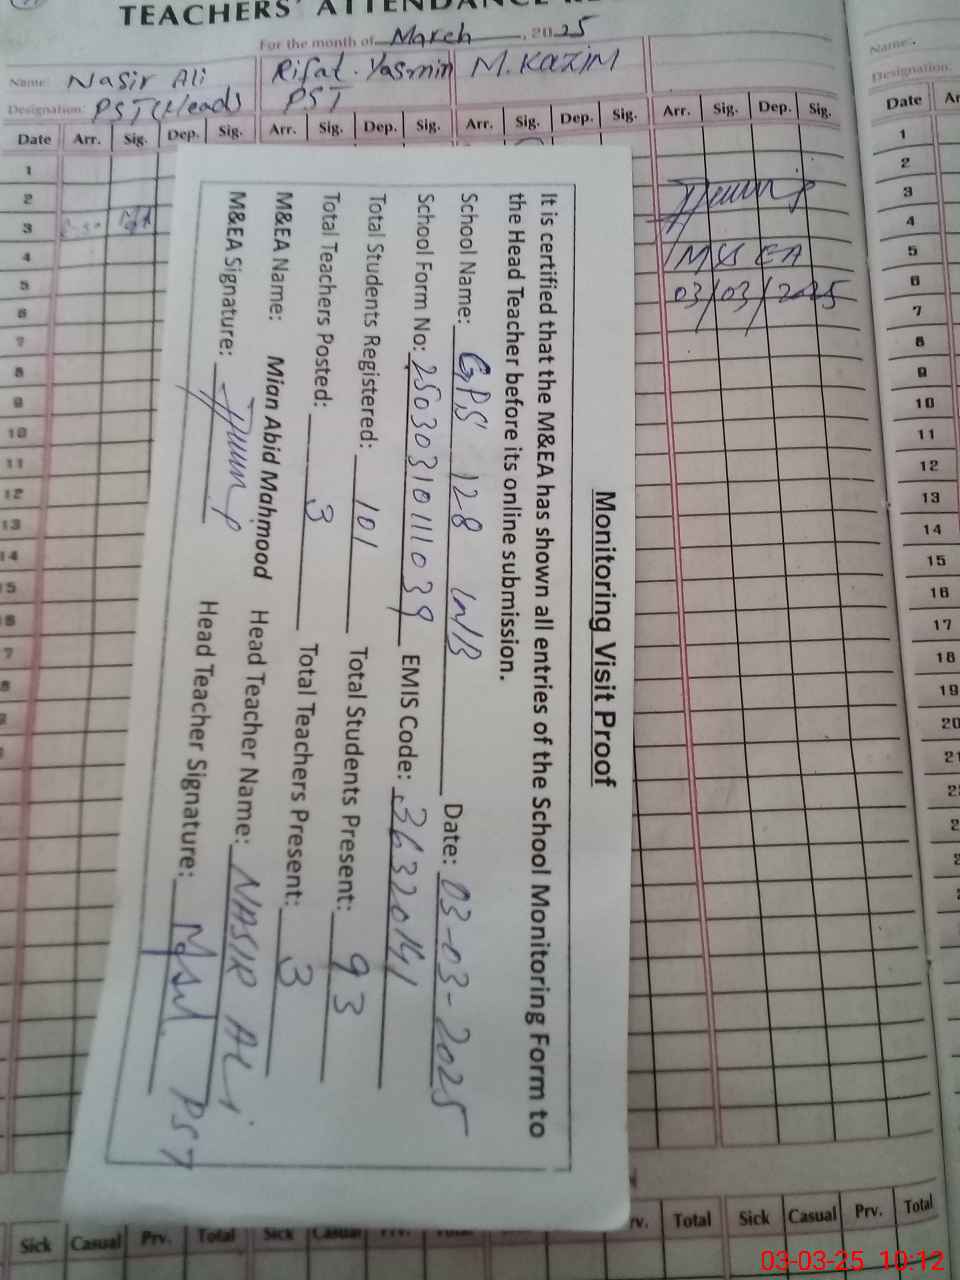 TEACHERS' ATTENDANCE
For the month of March, 2025
Name: Nasir Ali Rifat. Yasmin M. KAZIM
Designation: PST (Head) PST
Date Arr. Sig. Dep. Sig. Arr. Sig. Dep. Sig. Arr. Sig. Dep. Sig. Arr. Sig. Dep. Sig.
1
2
3
4
5
6
7
8
9
10
11
12
13
14
15
6
7
8
M&EA
03/03/2025
Monitoring Visit Proof
It is certified that the M&EA has shown all entries of the School Monitoring Form to
the Head Teacher before its online submission.
School Name: GPS 128 W/B Date: 03-03-2025
School Form No: 250303101111039 EMIS Code: 36320141
Total Students Registered: 101 Total Students Present: 93
Total Teachers Posted: 3 Total Teachers Present: 3
M&EA Name: Mian Abid Mahmood Head Teacher Name: NASIR ALI
M&EA Signature: Head Teacher Signature: PST
Sick Casual Prv. Total Sick Casual Prv. Total rv. Total Sick Casual Prv. Total
Name:
Designation:
Date Ar
1
2
3
4
5
6
7
8
9
10
11
12
13
14
15
16
17
18
19
20
21
03-03-25 10:12